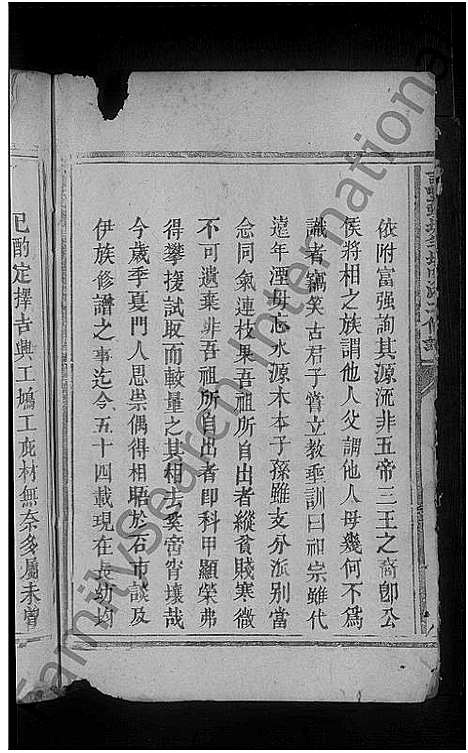 依附富强詢其源流非五帝三王之裔卽公
侯將相之族謂他人父謂他人母幾何不爲
識者竊笑古君子嘗立教垂訓曰祖宗雖代
遠年湮毋忘水源木本子孫雖支分派別當
念同氣連枝果吾祖所自出者縱貧賤寒微
不可遺棄非吾祖所自出者卽科甲顯榮弗
得攀援試取而較量之其相去奚啻霄壤哉
今歲季夏門人思崇偶得相晤於石市談及
伊族修譜之事迄今五十四載現在長幼均
已酌定擇吉興工鳩工庀材無奈多屬未曾
FamilySearch International